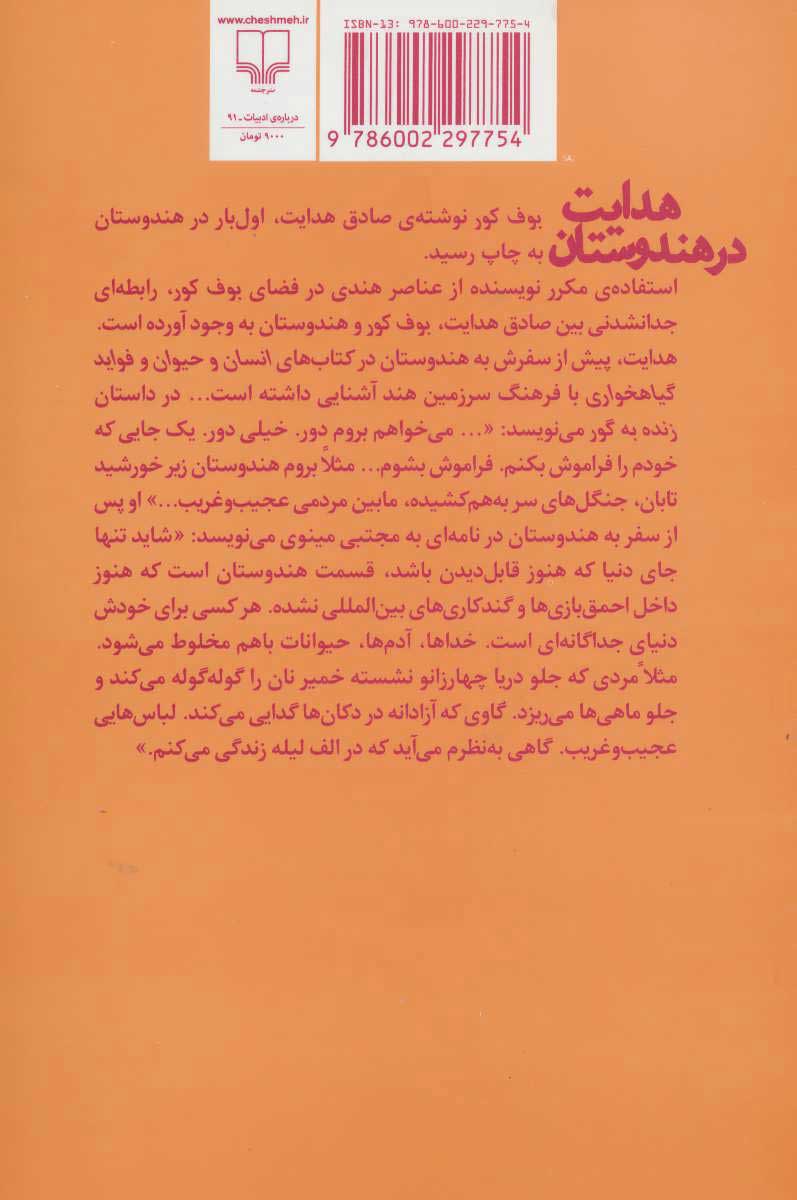 www.cheshmeh.ir
نشرچشمه
درباره‌ی ادبیات ـ ۹۱
۹۰۰۰ تومان
ISBN-13: 978-600-229-775-4
9 786002 297754
هدایت
در هندوستان
بوف کور نوشته‌ی صادق هدایت، اول‌بار در هندوستان
به چاپ رسید.
استفاده‌ی مکرر نویسنده از عناصر هندی در فضای بوف کور، رابطه‌ای
جدانشدنی بین صادق هدایت، بوف کور و هندوستان به وجود آورده است.
هدایت، پیش از سفرش به هندوستان در کتاب‌های انسان و حیوان و فواید
گیاهخواری با فرهنگ سرزمین هند آشنایی داشته است... در داستان
زنده به گور می‌نویسد: «... می‌خواهم بروم دور. خیلی دور. یک جایی که
خودم را فراموش بکنم. فراموش بشوم... مثلاً بروم هندوستان زیر خورشید
تابان، جنگل‌های سر به‌هم‌کشیده، مابین مردمی عجیب‌وغریب...» او پس
از سفر به هندوستان در نامه‌ای به مجتبی مینوی می‌نویسد: «شاید تنها
جای دنیا که هنوز قابل‌دیدن باشد، قسمت هندوستان است که هنوز
داخل احمق‌بازی‌ها و گندکاری‌های بین‌المللی نشده. هر کسی برای خودش
دنیای جداگانه‌ای است. خداها، آدم‌ها، حیوانات باهم مخلوط می‌شود.
مثلاً مردی که جلو دریا چهارزانو نشسته خمیر نان را گوله‌گوله می‌کند و
جلو ماهی‌ها می‌ریزد. گاوی که آزادانه در دکان‌ها گدایی می‌کند. لباس‌هایی
عجیب‌وغریب. گاهی به‌نظرم می‌آید که در الف لیله زندگی می‌کنم.»